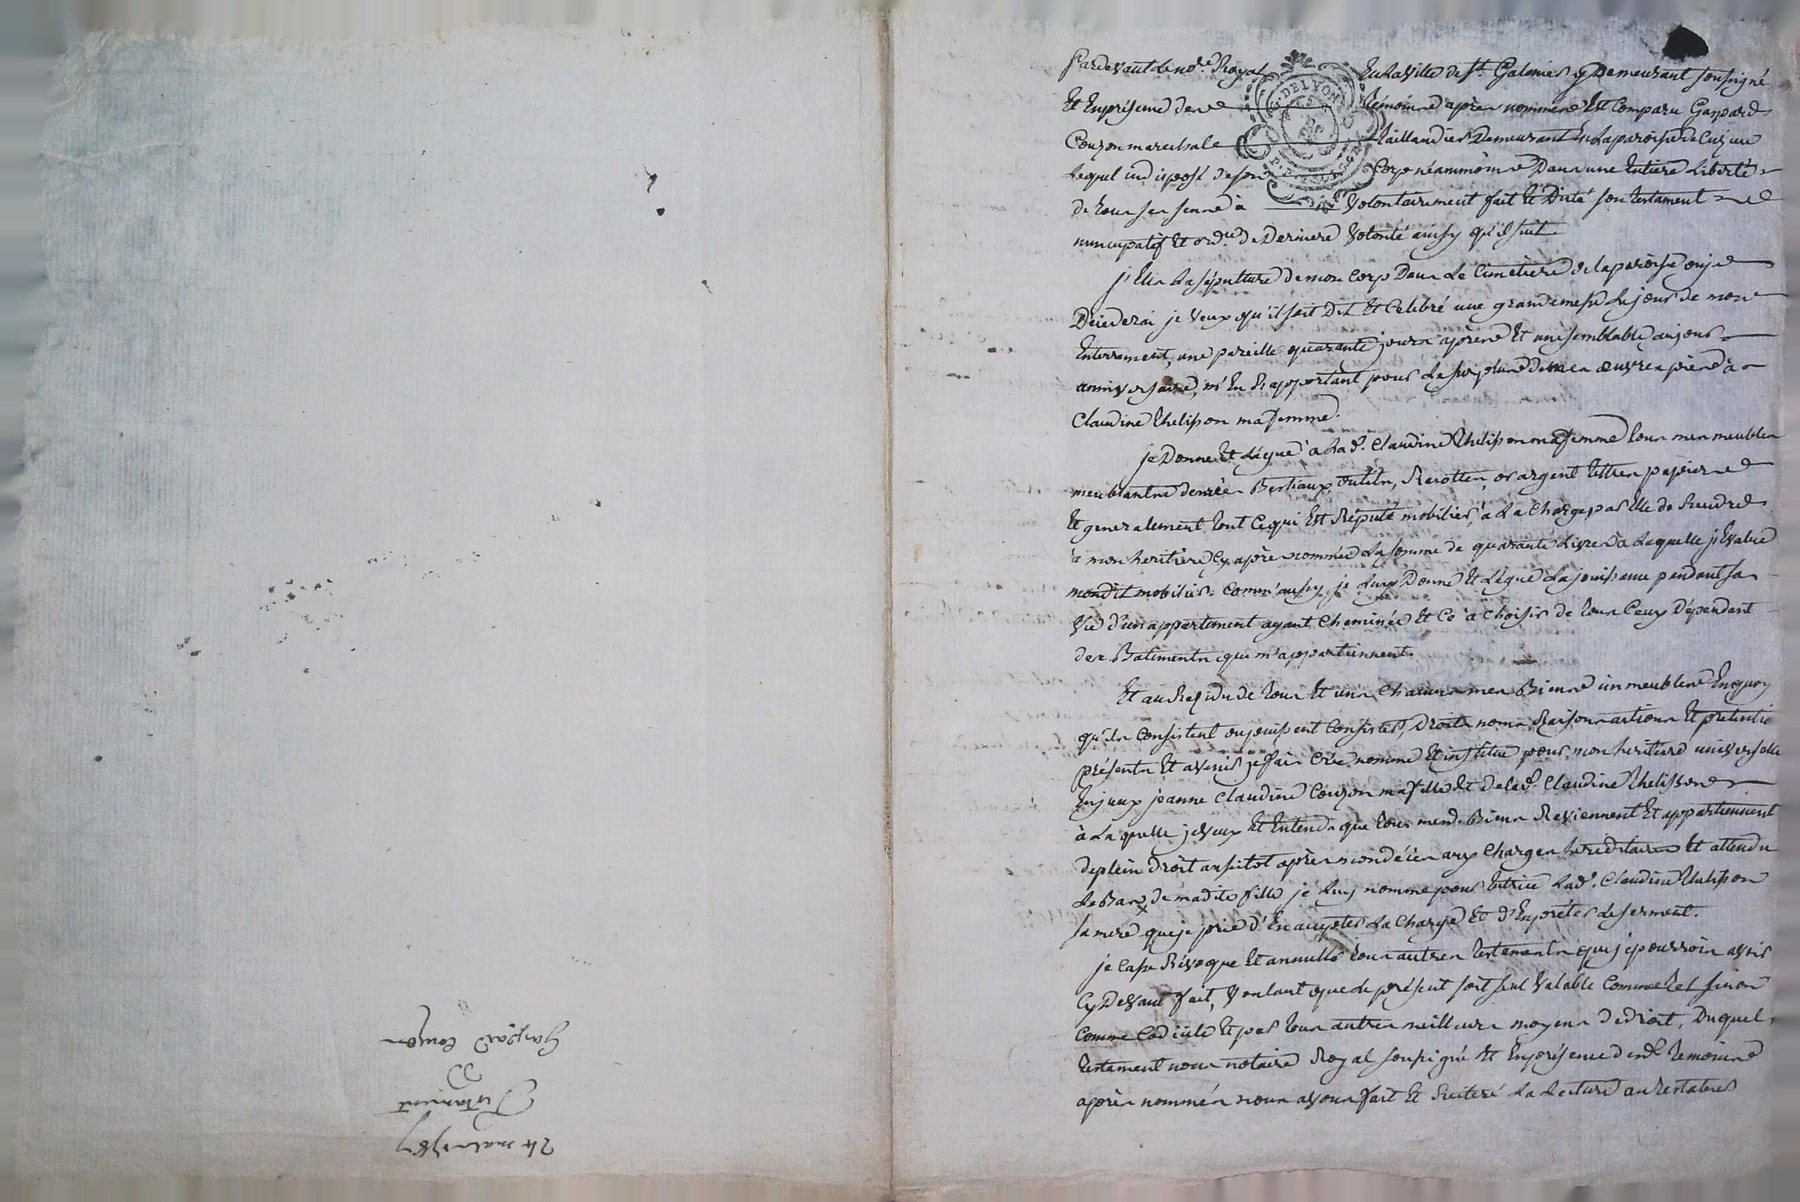 24 mars 1787
Testament
de
Gaspard Couzon
Pardevant le no.re Royal En la ville de St. Galmier y Demeurant soussigné
Et En présence des témoins après nommés Est Comparu Gaspard
Couzon marechal Taillandier Demeurant En la paroisse de Cuzieu
Lequel indisposé de son Corps néanmoins Dans une Entiere Liberté
de tous ses sens à volontairement fait Et Dicté son testament
nuncupatif Et ord.re de Derniere volonté ainsy qu'il suit
j'Elis La sépulture de mon Corps Dans Le Cimetiere de la paroisse ou je
Déciderai je veux qu'il soit Dit Et Celebré une grande messe Le jour de mon
Enterrement, une pareille quarante jours après Et une semblable au jour
anniversaire, m'En Rapportant pour Le surplus de mes œuvres pies à
Claudine Thelisson ma femme.
je Donne Et Légue à Lad.e Claudine Thelisson ma femme tous mes meubles
meublants denrées Bestiaux outils, Recoltes, or argent Lettres papiers
Et generalement tout Ce qui Est Réputé mobilier, à La Charge par Elle de Rendre
à mon heritiere Cy après nommée La somme de quarante Livres à Laquelle j'Evalue
mondit mobilier. Comm'aussy je Luy Donne Et Légue La jouissance pendant sa
vie d'un appartement ayant Cheminée Et Ce à Choisir de tous Ceux Dépendant
des Batiments qui m'appartiennent.
Et au Residu de tous Et uns Chacuns mes Biens immeubles En quoy
qu'ils Consistent ou puissent Consister, Droits noms Raisons actions Et prétentions
présents Et avenir je fais Crée nomme Et institue pour mon heritiere universelle
jeanne Claudine Couzon ma fille Et de lad.e Claudine Thelisson
à Laquelle je veux Et Entends que tous mesd. Biens Reviennent Et appartiennent
de plein Droit aussitot après mon décés aux Charges hereditaires Et attendu
Le Bas de madite fille je Luy nomme pour tutrice Lad.e Claudine Thelisson
sa mere que je prie d'En accepter La Charge Et d'En preter Le serment.
je Casse Révoque Et annulle tous autres testaments que je pourrois avoir
Cy Devant fait, voulant que Le présent soit seul valable Comme tel sinon
Comme Codicile Et par tous autres meilleurs moyens de droit, Duquel
testament nous notaire Royal soussigné Et En présence desd. temoins
après nommés nous avons fait Et Reiteré La Lecture au testateur